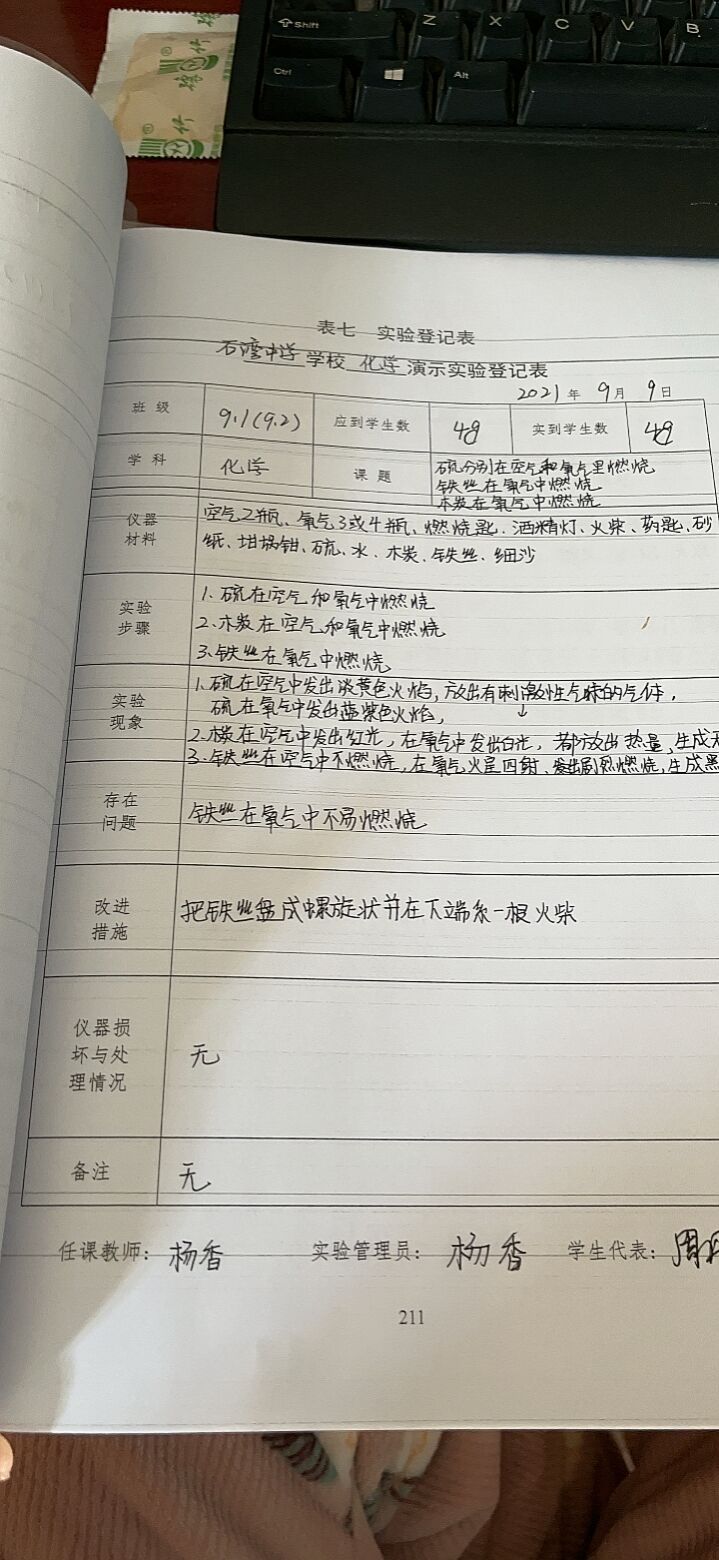 Shift
Z
X
C
V
B
Ctrl
Alt
表七 实验登记表
石湾中学 学校 化学 演示实验登记表
2021 年 9 月 9 日
班 级 9.1(9.2) 应到学生数 48 实到学生数 48
学 科 化学 课 题 硫分别在空气和氧气里燃烧
铁丝在氧气中燃烧
木炭在氧气中燃烧
仪器 空气2瓶、氧气3或4瓶、燃烧匙、酒精灯、火柴、药匙、砂
材料 纸、坩埚钳、硫、水、木炭、铁丝、细沙
实验 1、硫在空气和氧气中燃烧
步骤 2、木炭在空气和氧气中燃烧
3、铁丝在氧气中燃烧
实验 1、硫在空气中发出淡黄色火焰，放出有刺激性气味的气体，
现象 硫在氧气中发出蓝紫色火焰，↓
2、木炭在空气中发出红光，在氧气中发出白光，都放出热量，生成无
3、铁丝在空气中不燃烧，在氧气火星四射、发出剧烈燃烧，生成黑
存在
问题 铁丝在氧气中不易燃烧
改进 把铁丝盘成螺旋状并在下端系一根火柴
措施
仪器损
坏与处 无
理情况
备注 无
任课教师： 杨香 实验管理员： 杨香 学生代表： 周
211